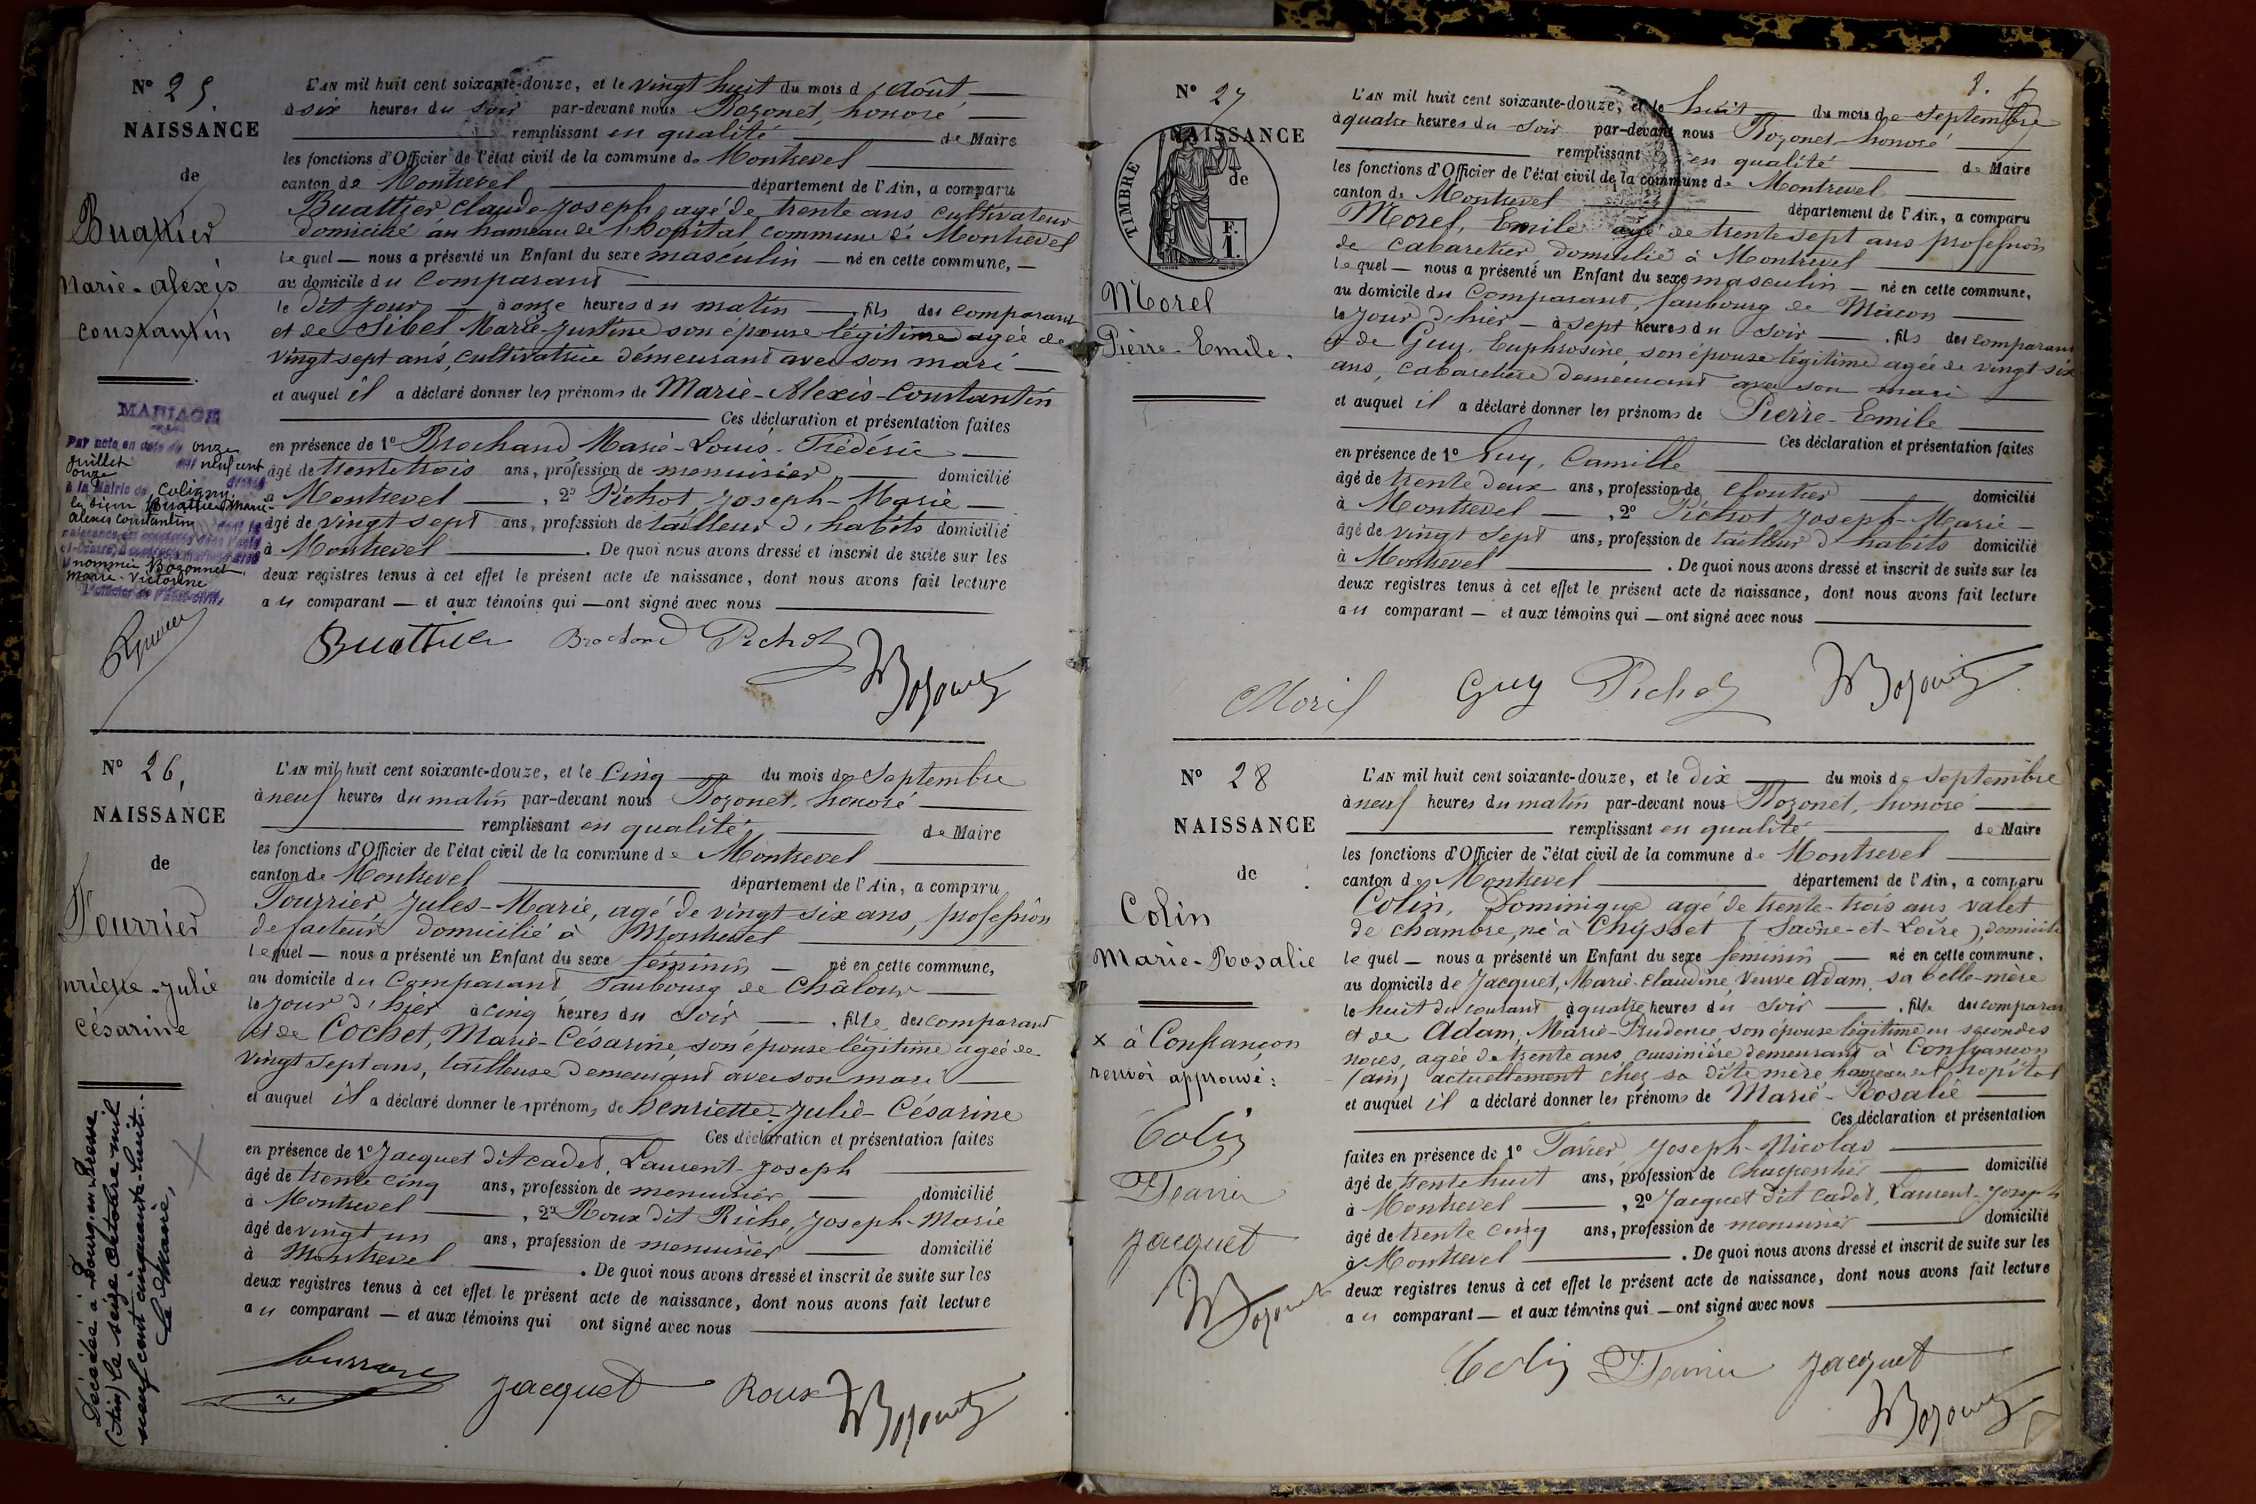 N° 25.
NAISSANCE
de
Buattier
Marie-Alexis
Constantin
MARIAGE
Par acte en date du onze
Juillet mil neuf cent
onze
à la Mairie de Coligny,
le sieur Buattier Marie-
Alexis Constantin
nommée Bozonnet
Marie-Victorine
L'AN mil huit cent soixante-douze, et le vingt huit du mois d'Août
à six heures du soir par-devant nous Bozonet, honoré
remplissant en qualité de Maire
les fonctions d'Officier de l'état civil de la commune de Montrevel
canton de Montrevel département de l'Ain, a comparu
Buattier Claude-Joseph, agé de trente ans cultivateur
domicilié au hameau de l'hôpital commune de Montrevel
lequel — nous a présenté un Enfant du sexe masculin — né en cette commune, —
au domicile du comparant
le dit jour — à onze heures du matin — , fils des comparant
et de Sibel Marie-Justine son épouse légitime agée de
vingt sept ans, cultivatrice demeurant avec son mari —
et auquel il a déclaré donner les prénoms de Marie-Alexis-Constantin
Ces déclaration et présentation faites
en présence de 1° Brochand, Marie-Louis-Frédéric
âgé de trente trois ans, profession de menuisier domicilié
à Montrevel — , 2° Pichot Joseph-Marie —
âgé de vingt sept ans, profession de tailleur d'habits domicilié
à Montrevel . De quoi nous avons dressé et inscrit de suite sur les
deux registres tenus à cet effet le présent acte de naissance, dont nous avons fait lecture
au comparant — et aux témoins qui — ont signé avec nous
Buattier Brochand Pichot
Bozonet
N° 26.
NAISSANCE
de
Fourrier
Henriette-Julie
Césarine
Décédée à Bourg-en-Bresse
(Ain) le seize Octobre mil
neuf cent cinquante-huit.-
Le Maire,
L'AN mil huit cent soixante-douze, et le cinq du mois de Septembre
à neuf heures du matin par-devant nous Bozonet, honoré
remplissant en qualité de Maire
les fonctions d'Officier de l'état civil de la commune de Montrevel
canton de Montrevel département de l'Ain, a comparu
Fourrier Jules-Marie, agé de vingt-six ans, profession
de facteur domicilié à Montrevel
lequel — nous a présenté un Enfant du sexe féminin — né en cette commune,
au domicile du comparant, Faubourg de Châlour
le jour d'hier à cinq heures du soir — , fille des comparant
et de Cochet, Marie-Césarine, son épouse légitime agée de
vingt sept ans, tailleuse demeurant avec son mari —
et auquel il a déclaré donner les prénoms de henriette-Julie-Césarine
Ces déclaration et présentation faites
en présence de 1° Jacquet dit cadet, Laurent-Joseph
âgé de trente cinq ans, profession de menuisier domicilié
à Montrevel , 2° Roux dit Riche, Joseph-Marie
âgé de vingt un ans, profession de menuisier domicilié
à Montrevel . De quoi nous avons dressé et inscrit de suite sur les
deux registres tenus à cet effet le présent acte de naissance, dont nous avons fait lecture
au comparant — et aux témoins qui ont signé avec nous
Jacquet Roux Bozonet
8.
N° 27
NAISSANCE
de
TIMBRE
F.
1.
Morel
Pierre-Emile.
L'AN mil huit cent soixante-douze, et le huit du mois de Septembre
à quatre heures du soir par-devant nous Bozonet honoré
remplissant en qualité de Maire
les fonctions d'Officier de l'état civil de la commune de Montrevel
canton de Montrevel département de l'Ain, a comparu
Morel, Emile agé de trente sept ans profession
de cabaretier domicilié à Montrevel
lequel — nous a présenté un Enfant du sexe masculin — né en cette commune,
au domicile du comparant, faubourg de Mâcon
le jour d'hier — à sept heures du soir — , fils des comparant
et de Guy, Euphrosine, son épouse légitime agée de vingt six
ans, cabaretière demeurant avec son mari
et auquel il a déclaré donner les prénoms de Pierre-Emile
Ces déclaration et présentation faites
en présence de 1° Guy, Camille
âgé de trente deux ans, profession de cloutier domicilié
à Montrevel — , 2° Pichot Joseph-Marie —
âgé de vingt sept ans, profession de tailleur d'habits domicilié
à Montrevel . De quoi nous avons dressé et inscrit de suite sur les
deux registres tenus à cet effet le présent acte de naissance, dont nous avons fait lecture
au comparant — et aux témoins qui — ont signé avec nous
Morel Guy Pichot Bozonet
N° 28
NAISSANCE
de
Colin
Marie-Rosalie
x à Confrançon
renvoi approuvé:
Colin
Jacquet
Bozonet
L'AN mil huit cent soixante-douze, et le dix du mois de Septembre
à neuf heures du matin par-devant nous Bozonet, honoré
remplissant en qualité de Maire
les fonctions d'Officier de l'état civil de la commune de Montrevel
canton de Montrevel département de l'Ain, a comparu
Colin, Dominique agé de trente-trois ans valet
de chambre, né à Chysset (Saône-et-Loire), domicilié
lequel — nous a présenté un Enfant du sexe féminin — né en cette commune.
au domicile de Jacquet, Marie-Claudine, Veuve Adam, sa belle-mère
le huit du courant à quatre heures du soir — , fille des comparant
et de Adam, Marie-Prudence son épouse légitime en secondes
noces, agée de trente ans, cuisinière demeurant à Confrançon
(ain) actuellement chez sa dite mère hameau de l'hôpital
et auquel il a déclaré donner les prénoms de Marie-Rosalie
Ces déclaration et présentation
faites en présence de 1° Favier, Joseph-Nicolas
âgé de trente huit ans, profession de charpentier domicilié
à Montrevel , 2° Jacquet dit cadet, Laurent-Joseph
âgé de trente cinq ans, profession de menuisier domicilié
à Montrevel . De quoi nous avons dressé et inscrit de suite sur les
deux registres tenus à cet effet le présent acte de naissance, dont nous avons fait lecture
au comparant — et aux témoins qui — ont signé avec nous
Colin Jacquet
Bozonet